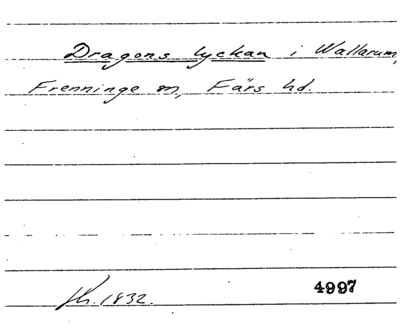 Dragons lyckan i Wallarum,
Frenninge sn, Färs hd.
1832.
4997